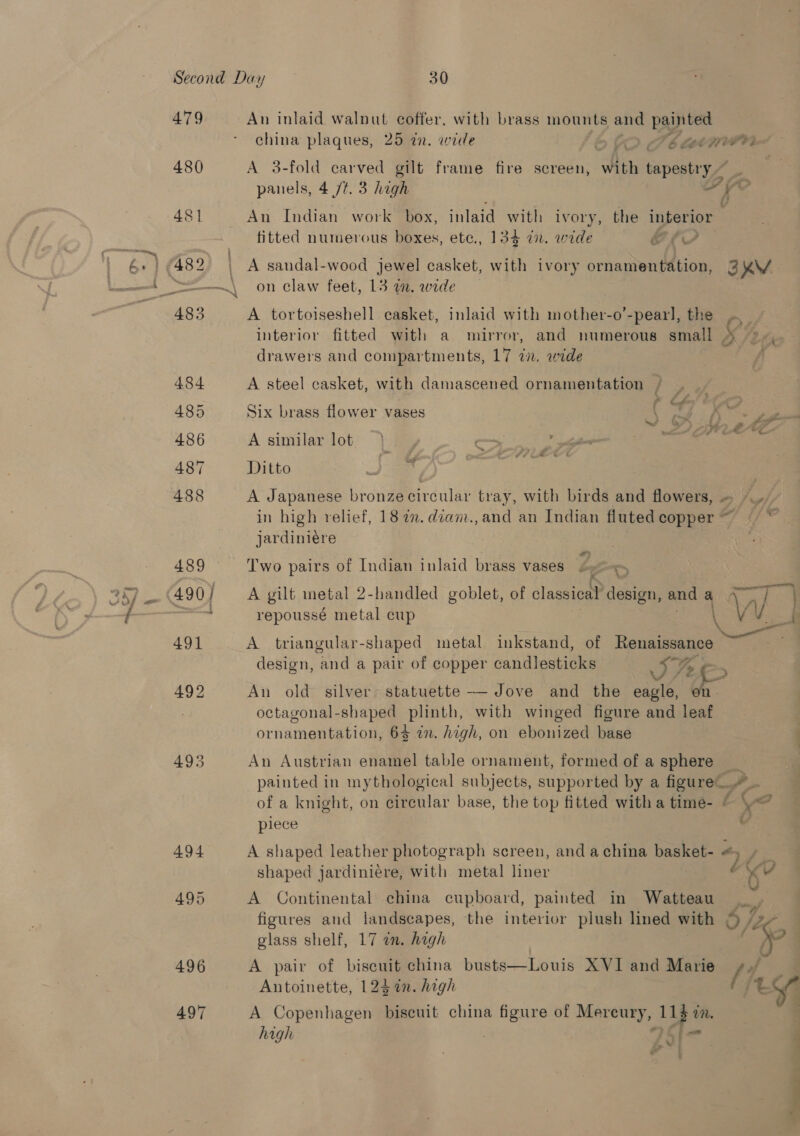 Second Day 30
479 An inlaid walnut coffer, with brass mounts and painted
china plaques, 25 in. wide
480 A 3-fold carved gilt frame fire screen, with tapestry
panels, 4 ft. 3 high
481 An Indian work box, inlaid with ivory, the interior
fitted numerous boxes, etc., 13½ in. wide
482 A sandal-wood jewel casket, with ivory ornamentation,
on claw feet, 13 in. wide
483 A tortoiseshell casket, inlaid with mother-o'-pearl, the
interior fitted with a mirror, and numerous small
drawers and compartments, 17 in. wide
484 A steel casket, with damascened ornamentation
485 Six brass flower vases
486 A similar lot
487 Ditto
488 A Japanese bronze circular tray, with birds and flowers,
in high relief, 18 in. diam., and an Indian fluted copper
jardiniére
489 Two pairs of Indian inlaid brass vases
490 A gilt metal 2-handled goblet, of classical design, and a
repoussé metal cup
491 A triangular-shaped metal inkstand, of Renaissance
design, and a pair of copper candlesticks
492 An old silver statuette — Jove and the eagle, on
octagonal-shaped plinth, with winged figure and leaf
ornamentation, 6½ in. high, on ebonized base
493 An Austrian enamel table ornament, formed of a sphere
painted in mythological subjects, supported by a figure
of a knight, on circular base, the top fitted with a time-
piece
494 A shaped leather photograph screen, and a china basket-
shaped jardiniére, with metal liner
495 A Continental china cupboard, painted in Watteau
figures and landscapes, the interior plush lined with
glass shelf, 17 in. high
496 A pair of biscuit china busts—Louis XVI and Marie
Antoinette, 12½ in. high
497 A Copenhagen biscuit china figure of Mercury, 11½ in.
high